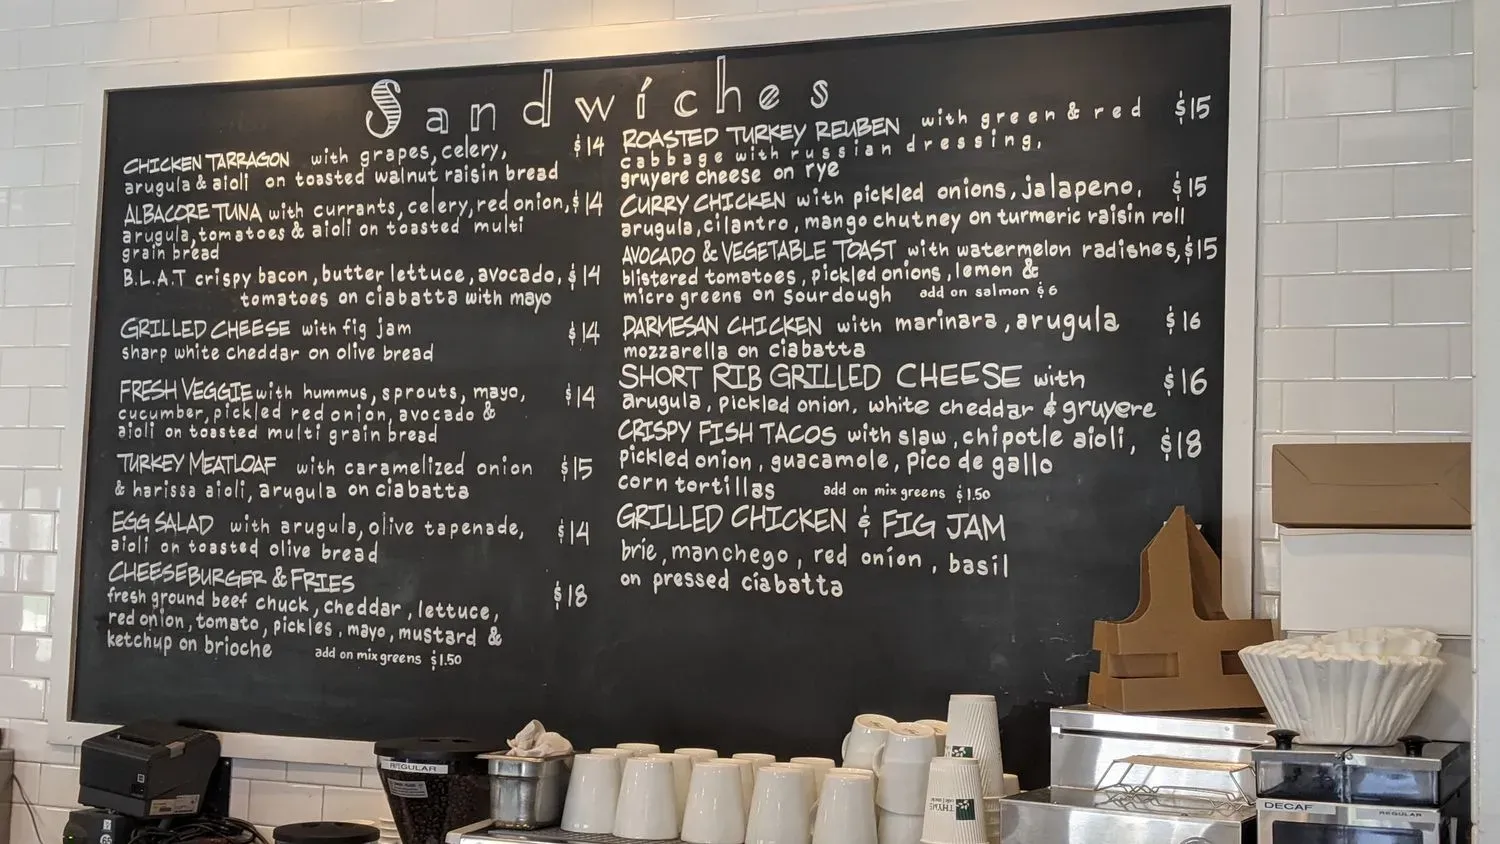 Sandwiches
CHICKEN TARRAGON with grapes, celery, $14
arugula & aioli on toasted walnut raisin bread
ALBACORE TUNA with currants, celery, red onion, $14
arugula, tomatoes & aioli on toasted multi
grain bread
B.L.A.T crispy bacon, butter lettuce, avocado, $14
tomatoes on ciabatta with mayo
GRILLED CHEESE with fig jam $14
sharp white cheddar on olive bread
FRESH VEGGIE with hummus, sprouts, mayo, $14
cucumber, pickled red onion, avocado &
aioli on toasted multi grain bread
TURKEY MEATLOAF with caramelized onion $15
& harissa aioli, arugula on ciabatta
EGG SALAD with arugula, olive tapenade, $14
aioli on toasted olive bread
CHEESEBURGER & FRIES $18
fresh ground beef chuck, cheddar, lettuce,
red onion, tomato, pickles, mayo, mustard &
ketchup on brioche add on mix greens $1.50
ROASTED TURKEY REUBEN with green & red $15
cabbage with russian dressing,
gruyere cheese on rye
CURRY CHICKEN with pickled onions, jalapeno, $15
arugula, cilantro, mango chutney on turmeric raisin roll
AVOCADO & VEGETABLE TOAST with watermelon radishes, $15
blistered tomatoes, pickled onions, lemon &
micro greens on sourdough add on salmon $6
PARMESAN CHICKEN with marinara, arugula $16
mozzarella on ciabatta
SHORT RIB GRILLED CHEESE with $16
arugula, pickled onion, white cheddar & gruyere
CRISPY FISH TACOS with slaw, chipotle aioli, $18
pickled onion, guacamole, pico de gallo
corn tortillas add on mix greens $1.50
GRILLED CHICKEN & FIG JAM
brie, manchego, red onion, basil
on pressed ciabatta
REGULAR
THYME
DECAF
REGULAR